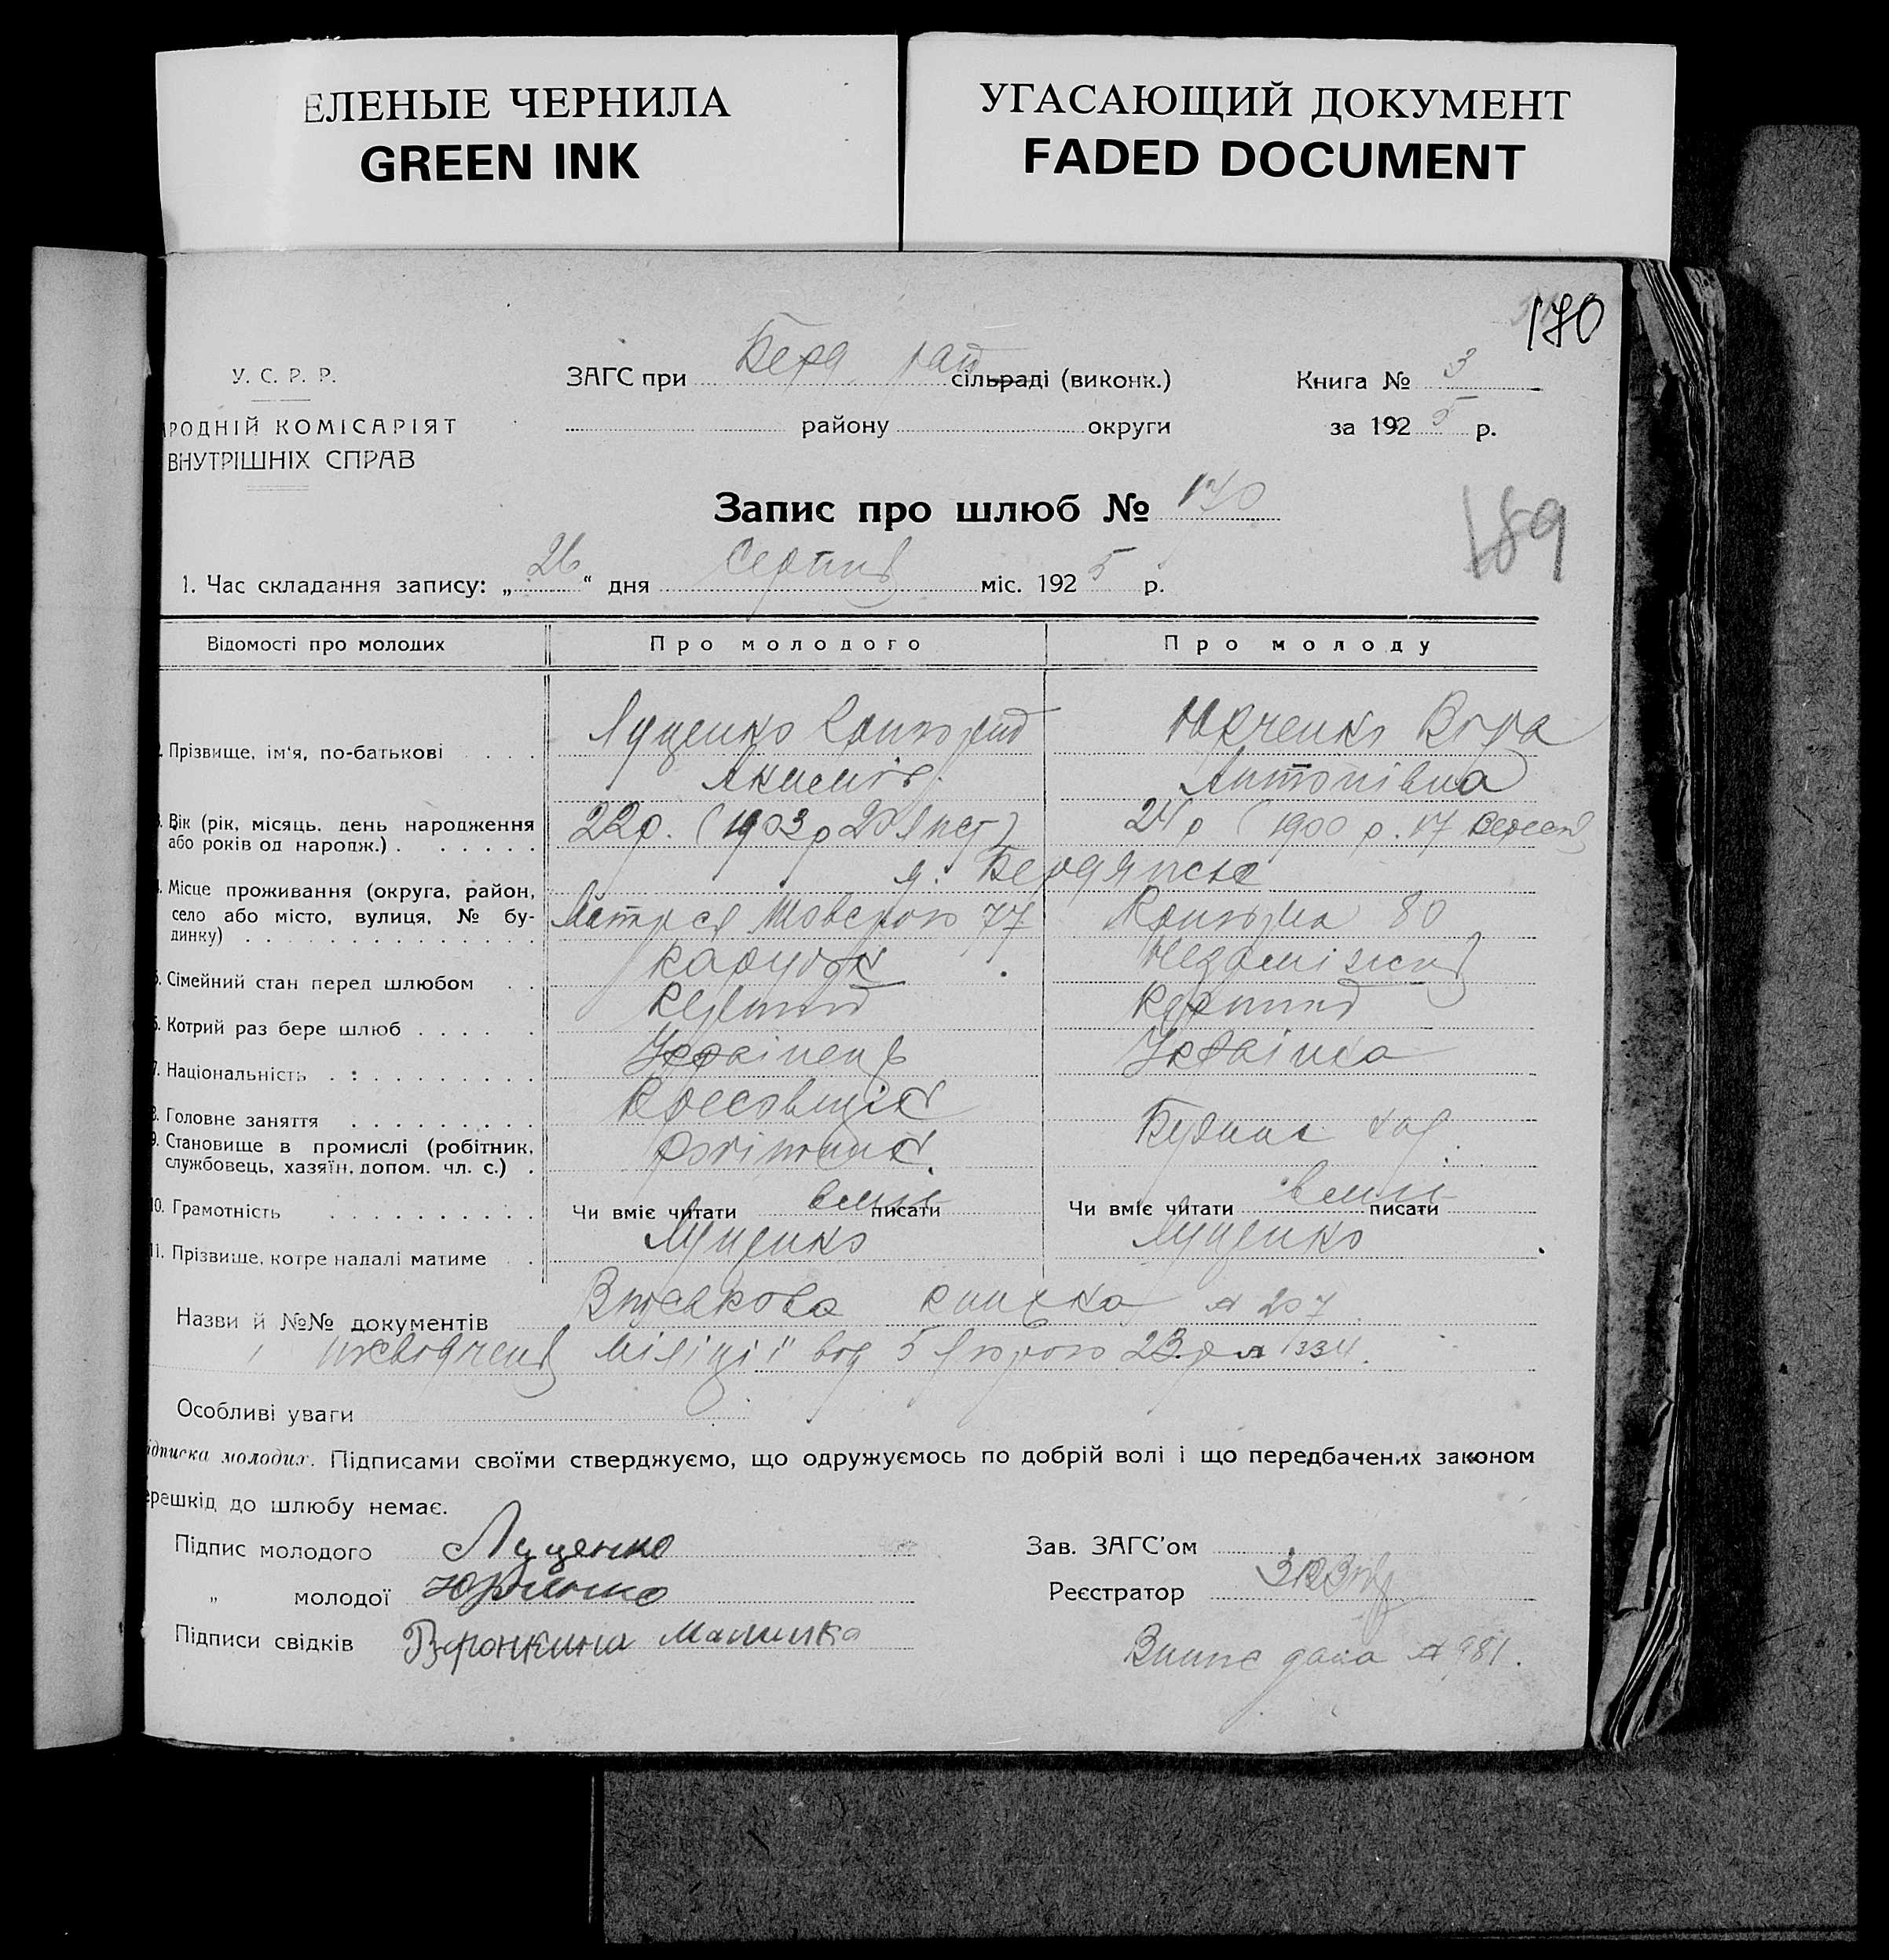 ЕЛЕНЫЕ ЧЕРНИЛА
GREEN INK
УГАСАЮЩИЙ ДОКУМЕНТ
FADED DOCUMENT
170
У. С. Р. Р.
РОДНІЙ КОМІСАРІЯТ
ВНУТРІШНІХ СПРАВ
ЗАГС при Берд. рай сільраді (виконк.)
району округи
Книга № 3
за 192 5 р.
Запис про шлюб № 170
189
1. Час складання запису: „ 26 “ дня Серпня міс. 192 5 р.
Відомості про молодих Про молодого Про молоду
2. Прізвище, ім'я, по-батькові Луценко Юрченко Віра
Антонівна
3. Вік (рік, місяць, день народження 22 р. (1903 р 20 Лист) 24 р (1900 р. 17 Вересня)
або років од народж.)
м. Бердянське
4. Місце проживання (округа, район,
село або місто, вулиця, № бу- 77 80
динку)
5. Сімейний стан перед шлюбом парубок Незаміжня
6. Котрий раз бере шлюб Первший Перший
7. Національність Українець Українка
8. Головне заняття
9. Становище в промислі (робітник, робітник
службовець, хазяїн, допом. чл. с.)
10. Грамотність Чи вміє читати вміє писати Чи вміє читати вміє писати
11. Прізвище, котре надалі матиме Луценко Луценко
Назви й №№ документів Військова книжка № 207
міліції від 5 Лютого 23 р № 1334.
Особливі уваги
ідписка молодих. Підписами своїми стверджуємо, що одружуємось по добрій волі і що передбачених законом
ерешкід до шлюбу немає.
Підпис молодого Луценко
„ молодої Юрченко
Підписи свідків
Зав. ЗАГС'ом
Реєстратор
Випис дана № 981.